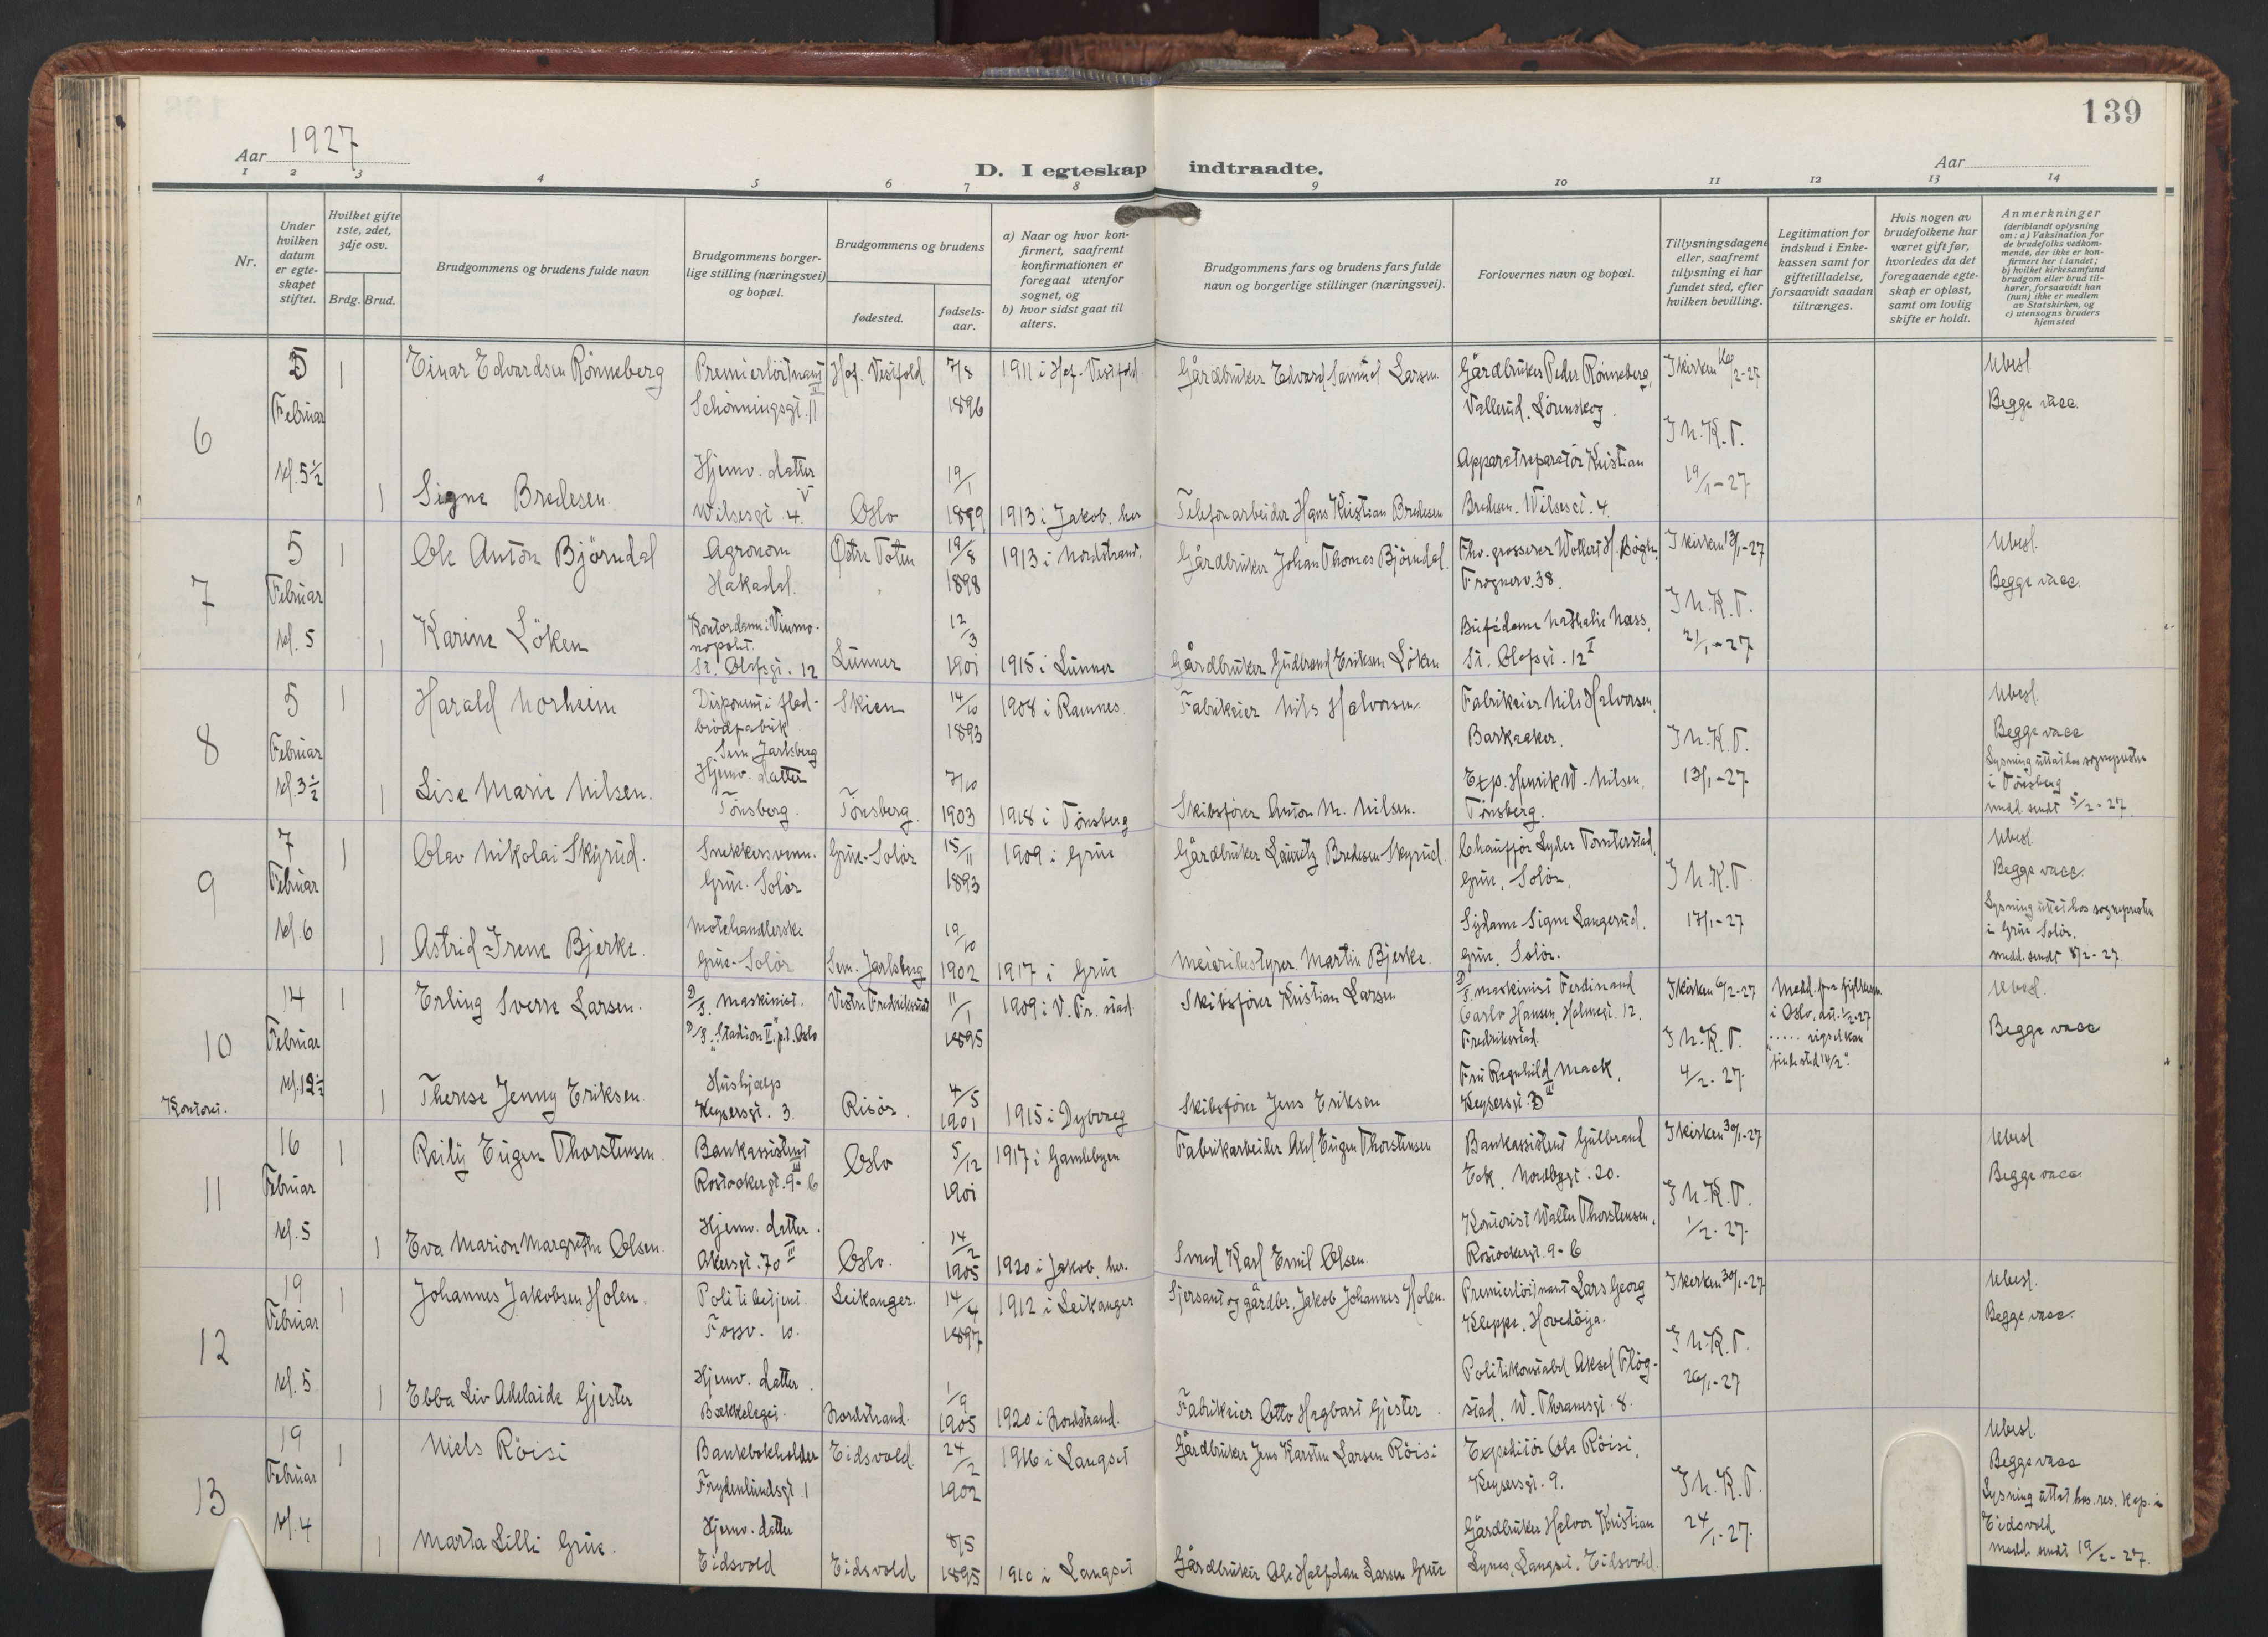 139
Aar 1927
D. I egteskap indtraadte.
Aar
1 2 3 4 5 6 7 8 9 10 11 12 13 14
Nr.
Under hvilken datum er egteskapet stiftet.
Hvilket gifte 1ste, 2det, 3dje osv.
Brdg. Brud.
Brudgommens og brudens fulde navn
Brudgommens borgerlige stilling (næringsvei) og bopæl.
Brudgommens og brudens
fødested.
fødselsaar.
a) Naar og hvor konfirmert, saafremt konfirmationen er foregaat utenfor sognet, og
b) hvor sidst gaat til alters.
Brudgommens fars og brudens fars fulde navn og borgerlige stillinger (næringsvei).
Forlovernes navn og bopæl.
Tillysningsdagene eller, saafremt tillysning ei har fundet sted, efter hvilken bevilling.
Legitimation for indskud i Enkekassen samt for giftetilladelse, forsaavidt saadan tiltrænges.
Hvis nogen av brudefolkene har været gift før, hvorledes da det foregaaende egteskap er opløst, samt om lovlig skifte er holdt.
Anmerkninger
(deriblandt oplysning om: a) Vaksination for de brudefolks vedkommende, der ikke er konfirmert her i landet;
b) hvilket kirkesamfund brudgom eller brud tilhører, forsaavidt han (hun) ikke er medlem av Statskirken, og
c) utensogns bruders hjemsted
6
5 Februar kl. 5½
1 Einar Edvardsen Rönneberg
Premierlöitnant Schönningsgt. 11 III
Hof. Vestfold 7/8 1896
1911 i Hof. Vestfold
Gårdbruker Edvard Samuel Larsen.
Gårdbruker Peder Rönneberg, Vallerud. Lörenskog.
I kirken 16/2-27
I h. K. T. 19/1-27
Ubesl.
Begge vacc.
1 Signe Bredesen.
Hjemv. datter Wilsesgt. 4. V
Oslo 19/1 1899
1913 i Jakob. her
Telefonarbeider Hans Kristian Bredesen
Apparatreparatör Kristian Bredesen. Wilsesgt. 4.
7
5 Februar kl. 5
1 Ole Anton Björndal
Agronom Hakadal.
Östre Toten 19/8 1898
1913 i Nordstrand.
Gårdbruker Johan Thomas Björndal.
Fhv. grosserer Wollert H. Bögh, Frognerv. 38.
I kirken 13/1-27
I h. K. T. 21/1-27
Ubesl.
Begge vacc.
1 Karine Löken
Kontordame i Vinmonopolet. St. Olafsgt. 12
Lunner 12/3 1901
1915 i Lunner
Gårdbruker Gudbrand Eriksen Löken
Bufédame Nathalie Næss, St. Olafsgt. 12 II
8
5 Februar kl. 3½
1 Harald Norheim
Disponent i fladbrödfabrik. Sem. Jarlsberg
Skien 14/10 1893
1908 i Ramnes.
Fabrikeier Nils Halvorsen.
Fabrikeier Nils Halvorsen, Barkaaker.
I h. K. T. 13/1-27
Ubesl.
Begge vacc
Lysning uttat hos sognepresten i Tönsberg
medd. sendt 5/2-27.
1 Lise Marie Nilsen.
Hjemv. datter Tönsberg.
Tönsberg. 7/10 1903
1918 i Tönsberg
Skibsförer Anton M. Nilsen.
Exp. Henrik W. Nilsen, Tönsberg.
9
7 Februar kl. 6
1 Olav Nikolai Skyrud.
Snekkersvenn. Grue. Solör
Grue-Solör 15/11 1893
1909 i Grue
Gårdbruker Lauritz Bredesen Skyrud.
Chauffør Lyder Tomterstad, Grue, Solör.
I h. K. T 17/1-27
Ubesl
Begge vacc.
Lysning uttat hos sognepresten i Grue Solör.
medd. sendt 8/2-27.
1 Astrid Irene Bjerke.
Motehandlerske Grue-Solör
Sem. Jarlsberg 19/10 1902
1917 i Grue
Meieribestyrer. Martin Bjerke.
Sydame Signe Langerud, Grue. Solör.
10
Kontoret.
14 Februar kl. 12½
1 Erling Sverre Larsen.
2/. maskinist. D/S. "Stadion II" p.t. Oslo
Vestre Fredrikstad 11/1 1895
1909 i V. Fr. stad.
Skibsförer Kristian Larsen
maskinist Ferdinand Carlo Hansen, Holmegt. 12. Fredrikstad.
I kirken 6/2-27
I h. K. T. 4/2-27.
Medd. fra fylkesm. i Oslo, dat. 1/2-27 ..... vigsel kan finde sted 14/2".
Ubesl.
Begge vacc
1 Therese Jenny Eriksen.
Hushjælp Keysersgt. 3.
Risör. 4/5 1901
1915 i Dybvaag
Skibsförer Jens Eriksen
Fru Ragnhild Mack, Keysersgt. 3 III
11
16 Februar kl. 5
1 Reily Eugen Thorstensen.
Bankassistent Rostockergt. 9-b III
Oslo 5/12 1901
1917 i Gamlebyen
Fabrikarbeider Axel Eugen Thorstensen
Bankassistent Gulbrand Eek. Nordbygt. 20.
I kirken 30/1-27
I h. K. T. 1/2-27.
Ubesl
Begge vacc.
1 Eva Marion Margrethe Olsen.
Hjemv. datter. Akersgt. 70 III
Oslo. 14/2 1905
1920 i Jakob. her.
Smed Karl Emil Olsen.
Kontorist Walter Thorstensen, Rostockergt. 9-b
12
19 Februar kl. 5
1 Johannes Jakobsen Holen.
Politibetjent. Fossv. 10.
Leikanger. 14/4 1897
1912 i Leikanger
Sjersant og gårdbr. Jakob Johannes Holen.
Premierlöitnant Lars Georg Kleppe. Hovedöya.
I kirken 30/1-27
I h. K. T. 26/1-27
Ubesl.
Begge vacc.
1 Ebba Liv Adelaide Gjester
Hjemv. datter. Bækkelaget.
Nordstrand. 1/9 1905
1920 i Nordstrand.
Fabrikeier Otto Hagbart Gjester.
Politikonstabel Aksel Flögstad. W. Thranesgt. 8.
13
19 Februar kl. 4
1 Niels Röisi
Bankbokholder Frydenlundsgt. 1
Eidsvold. 24/2 1902
1916 i Langset
Gårdbruker Jens Karsten Larsen Röisi
Expeditör Ole Röisi, Keysersgt. 9.
I h. K. T. 24/1-27.
Ubesl.
Begge vacc
Lysning uttat hos res. kap. i Eidsvold
medd. sendt 19/2-27.
1 Marta Lilli Grue.
Hjemv. datter Eidsvold
Eidsvold 8/5 1895
1910 i Langset
Gårdbruker Ole Halfdan Larsen Grue
Gårdbruker Halvor Kristian Lynes, Langset. Eidsvold.